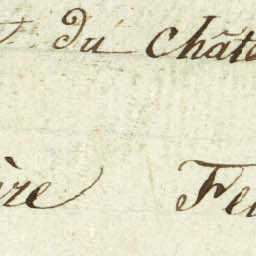 du chât
ire Fe